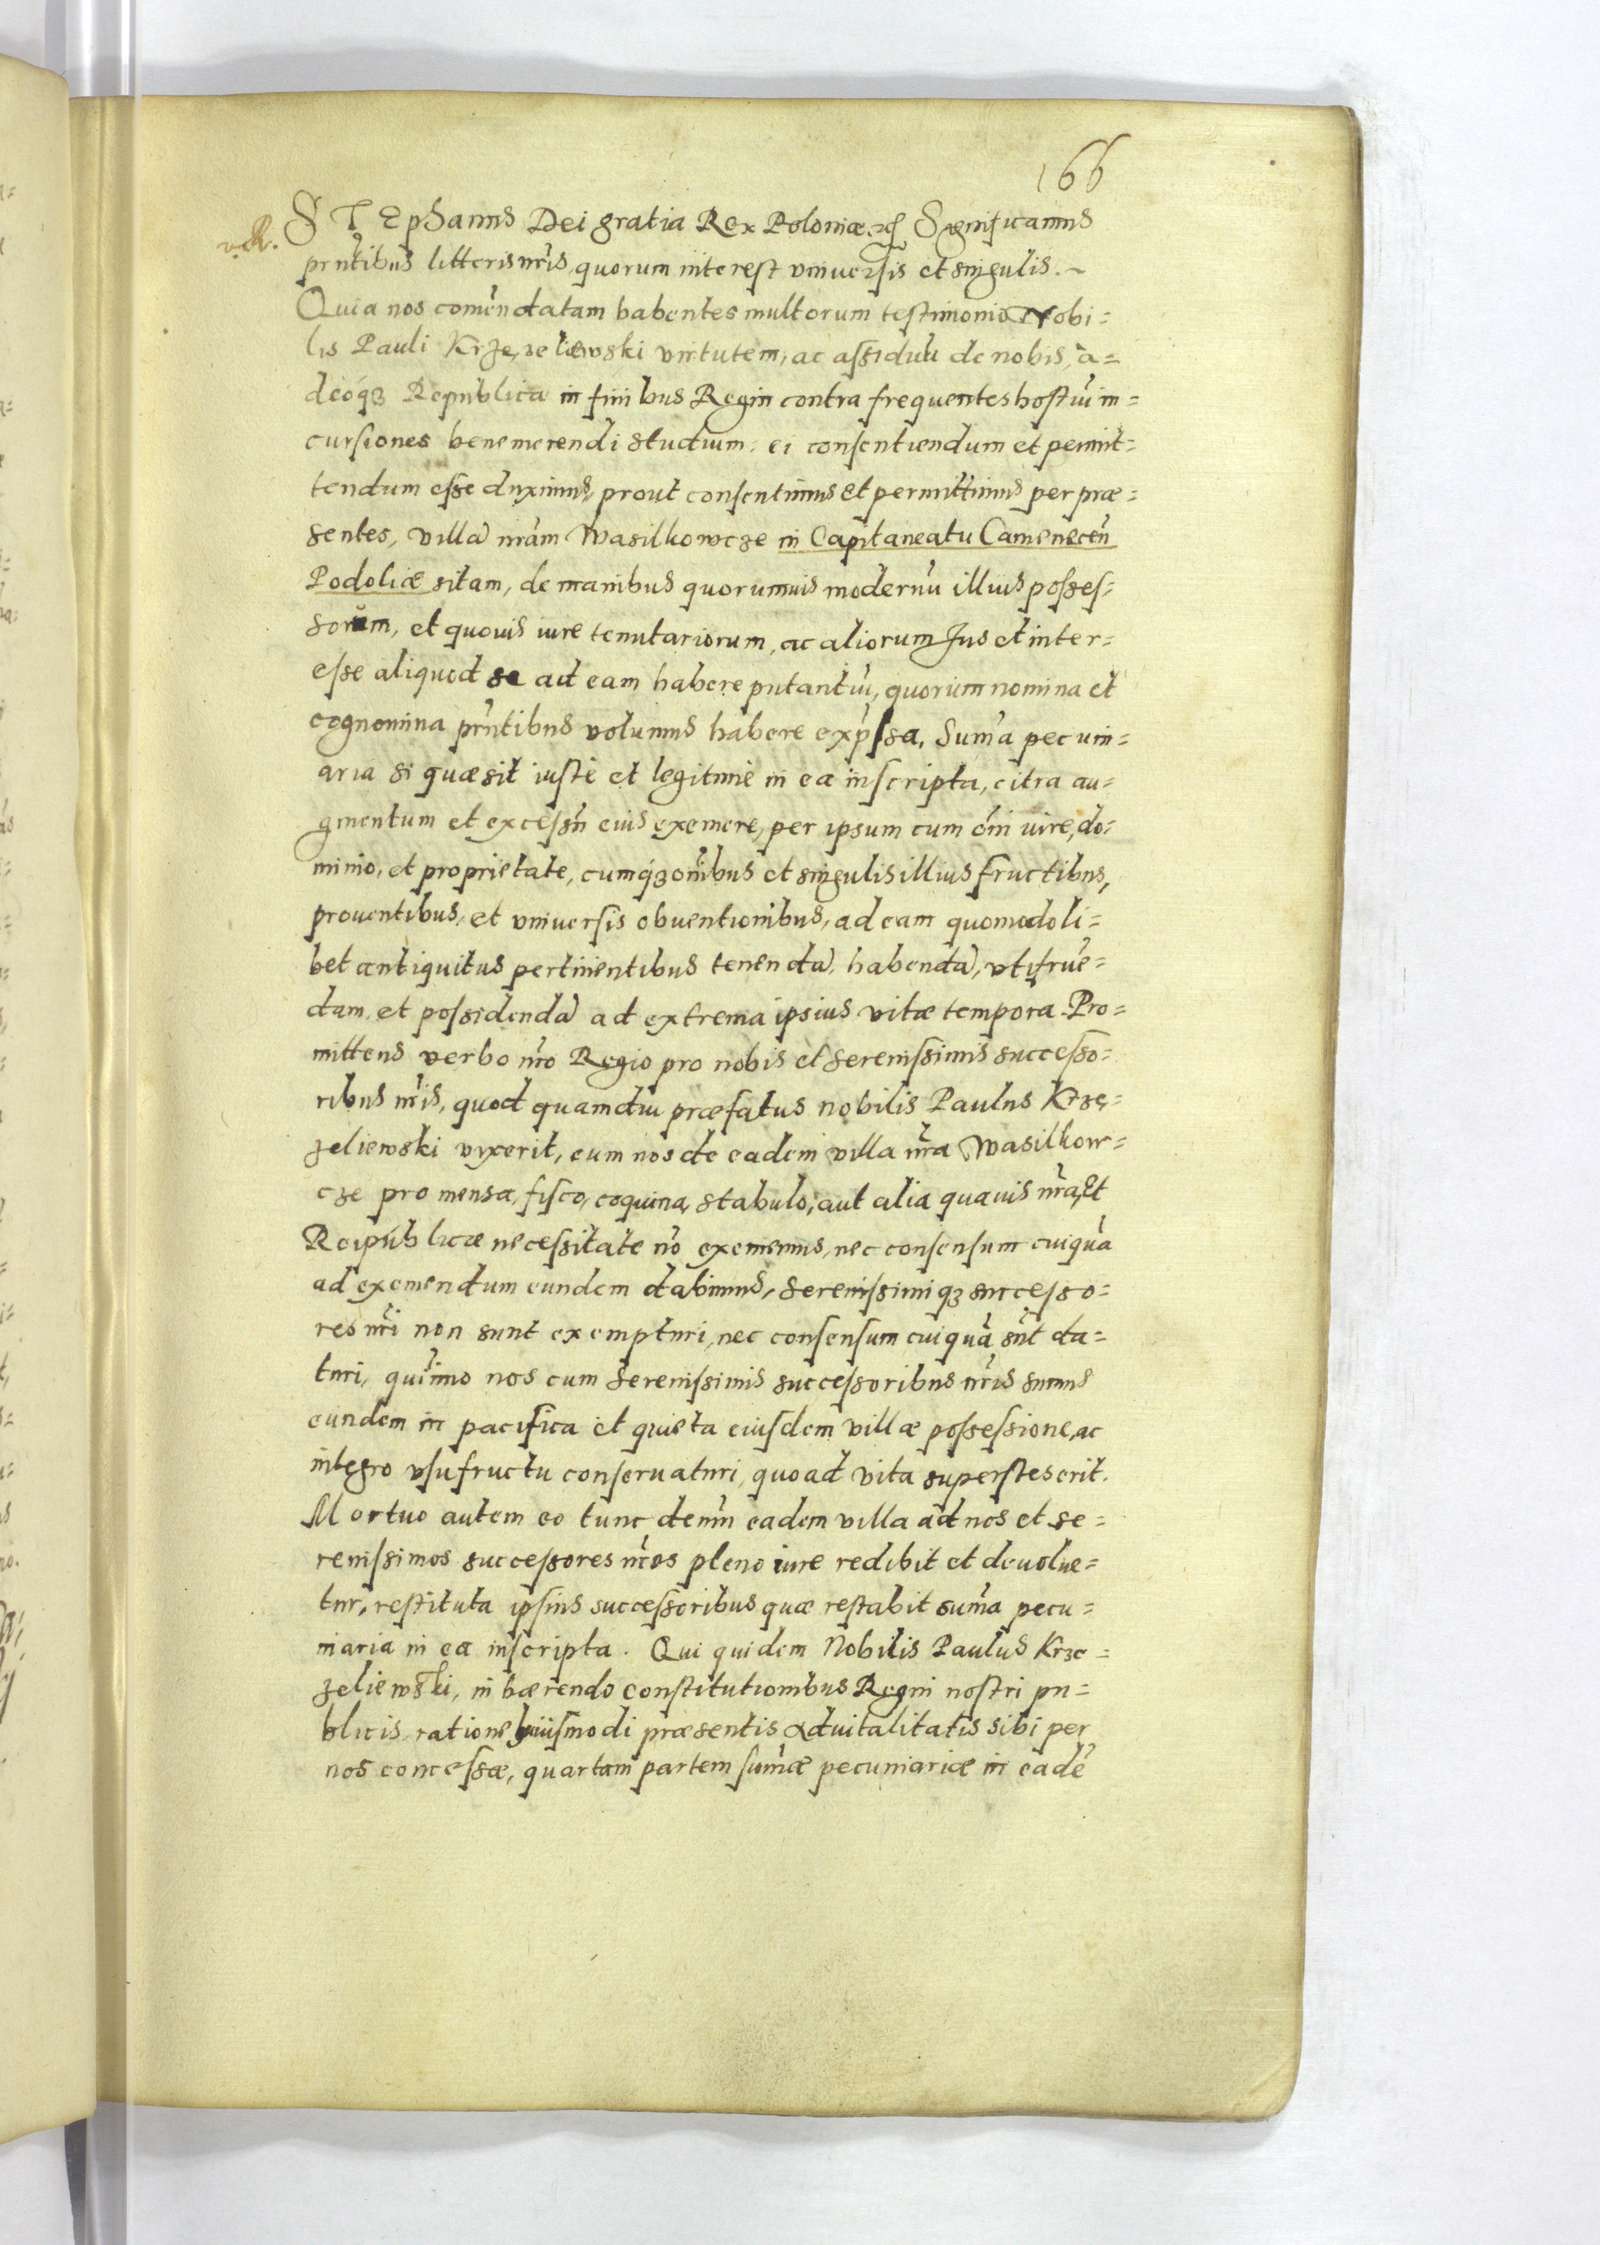 166
STEphanus Dei gratia Rex Poloniæ etc Significamus
prn̄tibus litteris nr̄is, quorum interest vniuersis et singulis.
Quia nos com̄endatam habentes multorum testimonio Nobi=
lis Pauli Krzezeliewski virtutem, ac assiduū de nobis, a=
deoq́ꝫ Republica in finibus Regni contra frequentes hostiū in=
cursiones benemerendi studium. ei consentiendum et permit=
tendum esse duximus, prout consentimus et permittimus per præ=
sentes, villā nr̄am Wasilkowcze in Capitaneatu Camenecen̄
Podoliæ sitam, de manibus quorumuis modernū illius posses=
sorum, et quouis iure tenutariorum, ac aliorum Jus et inter=
esse aliquod se ad eam habere putantiū, quorum nomina et
cognomina prn̄tibus volumus habere exp̄ssa, Sum̄a pecuni=
aria si quæ sit iustè et legitimè in ea inscripta, citra au=
gmentum et excessū eius exemere, per ipsum cum om̄i iure, do=
minio, et proprietate, cumq́ꝫ om̄ibus et singulis illius fructibus,
prouentibus, et vniuersis obuentionibus, ad eam quomodoli=
bet antiquitus pertinentibus tenendā, habendā, vtifruē=
dam, et possidendā ad extrema ipsius vitæ tempora. Pro=
mittens verbo nr̄o Regio pro nobis et Serenissimis successo=
ribus nr̄is, quod quamdiu præfatus nobilis Paulus Krze,=
zeliewski vixerit, eum nos de eadem villa nr̄a Wasilkow=
cze pro mensa, fisco, coquina, stabulo, aut alia quauis nr̄a, Et
Reipub licæ necessitate nō eximemus, nec consensum cuiquā
ad exemendum eundem dabimus, Serenissimiqꝫ successo=
res nr̄i non sunt exempturi, nec consensum cuiquā sūt da=
turi, quim̄mo nos cum Serenissimis successoribus nr̄is sumus
eundem in pacifica et quieta eiusdem villæ possessione, ac
integro vsufructu conseruaturi, quoad vita superstes erit.
Mortuo autem eo tunc demū eadem villa ad nos et se=
renissimos successores nr̄os pleno iure redibit et deuolue=
tur, restituta ipsius successoribus quæ restabit sum̄a pecu=
niaria in ea inscripta. Qui quidem Nobilis Paulus Krze=
zeliewski, in hærendo constitutionibus Regni nostri pu=
blicis, ratione huiusmodi præsentis aduitalitatis sibi per
nos concessæ, quartam partem sum̄æ pecuniariæ in eadē